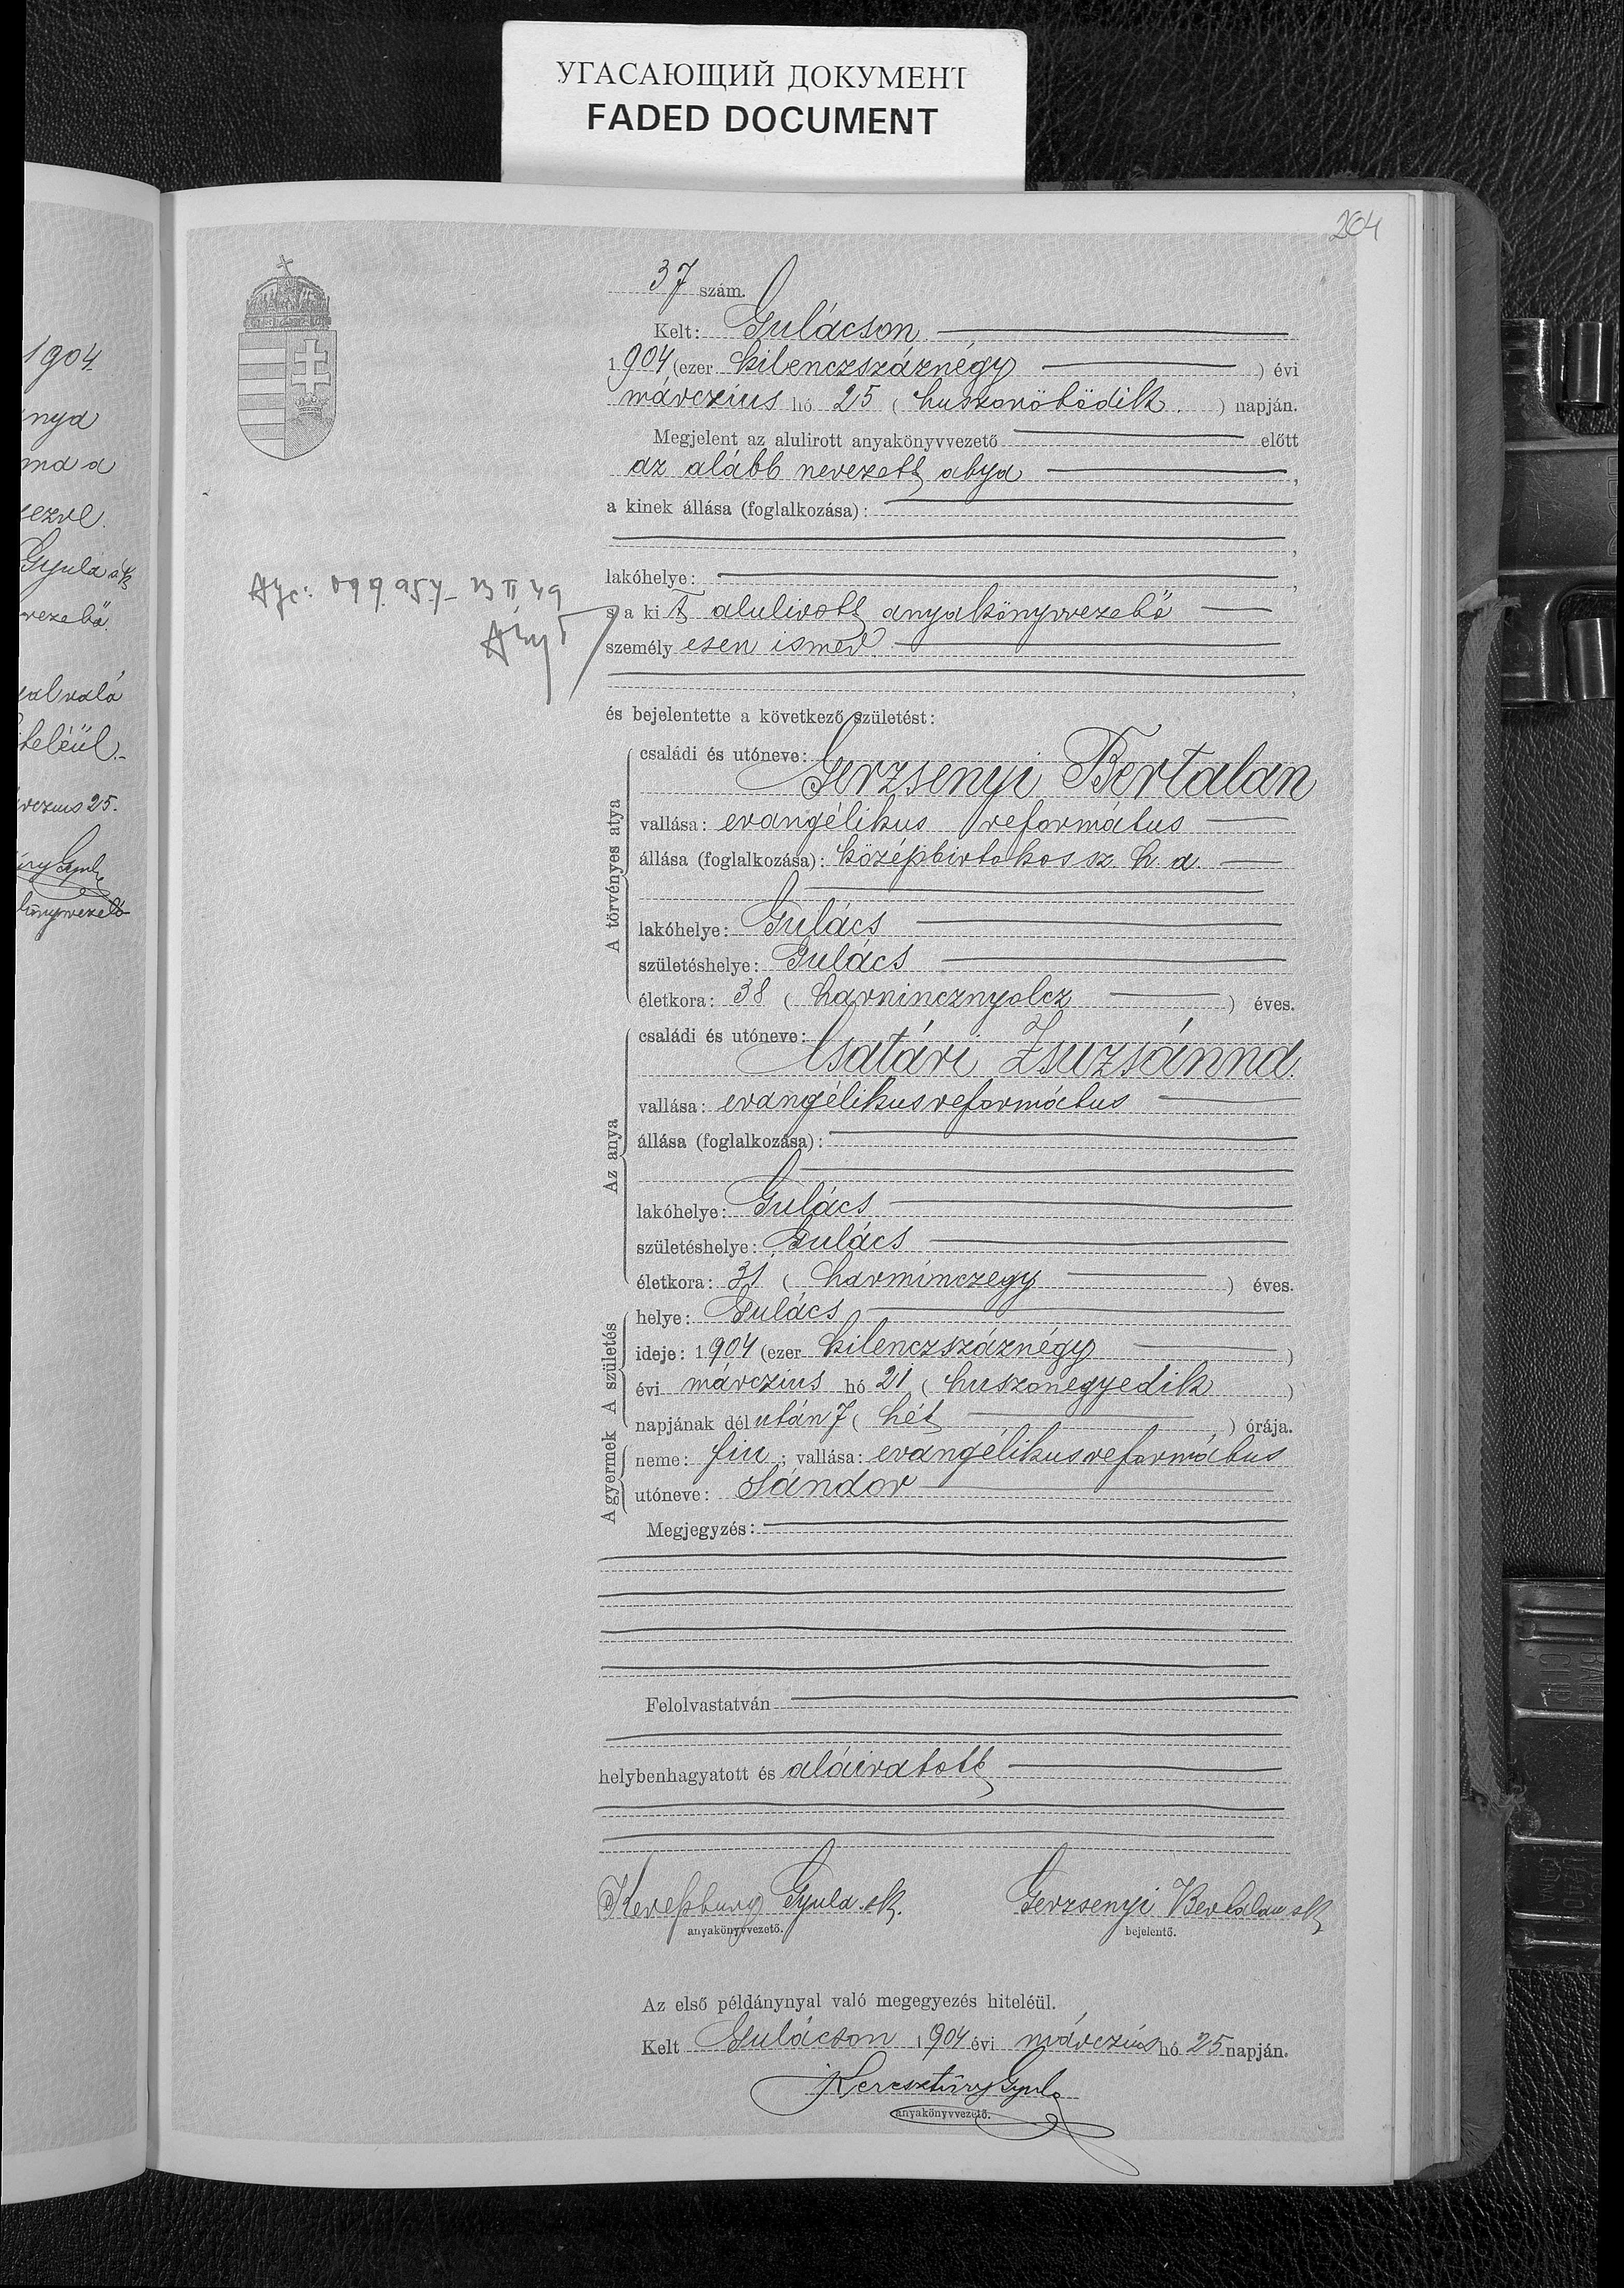 УГАСАЮЩИЙ ДОКУМЕНТ
FADED DOCUMENT
264
1904
nya
ma a
ezve.
Gyula sk
vezető.
al való
teléül.
márczius 25.
37 szám.
Kelt: Gulácson
1904 (ezer kilenczszáznégy ) évi
márczius hó 25 ( huszonötödik ) napján.
Megjelent az alulirott anyakönyvvezető előtt
az alább nevezett atya ,
a kinek állása (foglalkozása):
,
lakóhelye: ,
s a kit alulirott anyakönyvvezető
személyesen ismer
,
és bejelentette a következő születést:
A törvényes atya
családi és utóneve:
Gerzsenyi Bertalan
vallása: evangélikus református
állása (foglalkozása): középbirtokos sz. h. a.
lakóhelye: Gulács
születéshelye: Gulács
életkora: 38 ( harmincznyolcz ) éves.
Az anya
családi és utóneve:
Csatári Zsuzsánna
vallása: evangélikusreformátus
állása (foglalkozása):
lakóhelye: Gulács
születéshelye: Gulács
életkora: 31 ( harminczegy ) éves.
A születés
helye: Gulács
ideje: 1904 (ezer kilenczszáznégy )
évi márczius hó 21 ( huszonegyedik )
napjának délután 7 ( hét ) órája.
A gyermek
neme: fiu ; vallása: evangélikusreformátus
utóneve: Sándor
Megjegyzés:
Felolvastatván
helybenhagyatott és aláiratott
Gyula sk. Gerzsenyi Bertalan sk
anyakönyvvezető. bejelentő.
Az első példánynyal való megegyezés hiteléül.
Kelt Gulácson 1904 évi márczius hó 25 napján.
Keresztúry Gyula
anyakönyvvezető.